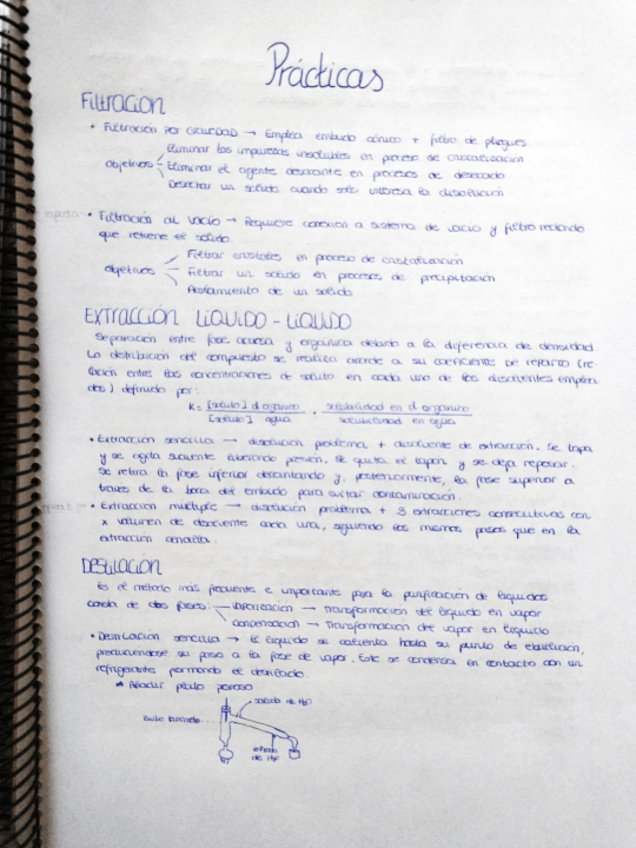 Prácticas
FILTRACIÓN
• FILTRACIÓN POR GRAVEDAD → Emplea embudo cónico + filtro de pliegues.
Eliminar las impurezas insolubles en proceso de cristalización
objetivos Eliminar el agente desecante en procesos de desecado
Desechar un sólido cuando solo interesa la disolución
• FILTRACIÓN AL VACÍO → Requiere conexión a sistema de vacío y filtro redondo
que retiene el sólido.
Filtrar cristales en proceso de cristalización
objetivos Filtrar un sólido en procesos de precipitación
Aislamiento de un sólido
EXTRACCIÓN LÍQUIDO - LÍQUIDO
Separación entre fase acuosa y orgánica debido a la diferencia de densidad.
La distribución del compuesto se realiza acorde a su coeficiente de reparto (re-
lación entre las concentraciones de soluto en cada uno de los disolventes emplea
dos) definido por:
K = [soluto] d orgánico / [soluto] agua = solubilidad en d orgánico / solubilidad en agua
• Extracción sencilla → disolución problema + disolvente de extracción. Se tapa
y se agita liberando presión. Se quita el tapón y se deja reposar.
Se retira la fase inferior decantando y, posteriormente, la fase superior a
través de la boca del embudo para evitar contaminación.
• Extracción múltiple → disolución problema + 3 extracciones consecutivas con
x volumen de disolvente cada una, siguiendo los mismos pasos que en la
extracción sencilla.
DESTILACIÓN
Es el método más frecuente e importante para la purificación de líquidos.
consta de dos fases: vaporización → transformación del líquido en vapor
condensación → transformación del vapor en líquido
• Destilación sencilla → El líquido se calienta hasta su punto de ebullición,
produciéndose su paso a la fase de vapor. Este se condensa en contacto con un
refrigerante formando el destilado.
* Añadir plato poroso
salida de H2O
entrada
de H2O